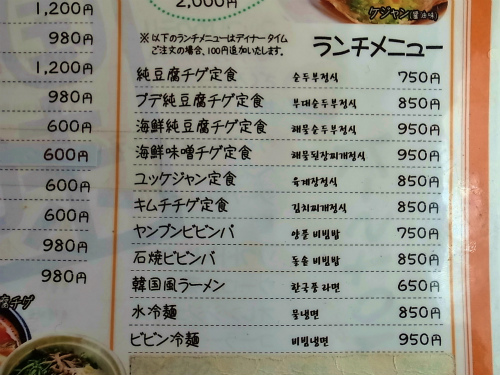 1,200円
980円
1,200円
980円
600円
600円
600円
600円
980円
980円
チゲ
2,000円
ケジャン(醤油味)
※以下のランチメニューはディナータイム
ご注文の場合、100円追加いたします。
ランチメニュー
純豆腐チゲ定食 순두부정식 750円
プデ純豆腐チゲ定食 부대순두부정식 850円
海鮮純豆腐チゲ定食 해물순두부정식 950円
海鮮味噌チゲ定食 해물된장찌개정식 950円
ユッケジャン定食 육계장정식 850円
キムチチゲ定食 김치찌개정식 850円
ヤンプンビビンバ 양푼 비빔밥 750円
石焼ビビンバ 돌솥 비빔밥 850円
韓国風ラーメン 한국풍 라면 650円
水冷麺 물냉면 850円
ビビン冷麺 비빔냉면 950円